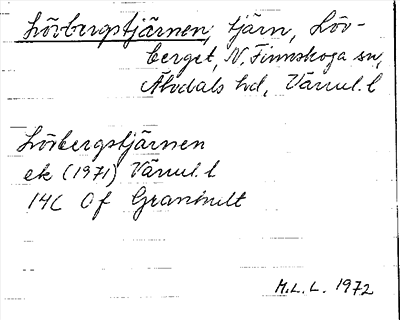 Lövbergstjärnen, tjärn, Löv-
berget, N. Finnskoga sn,
Älvdals hd, Värml. l
Lövbergstjärnen
ek (1971) Värml. l
14C 0f Granhult
M.L.L. 1972